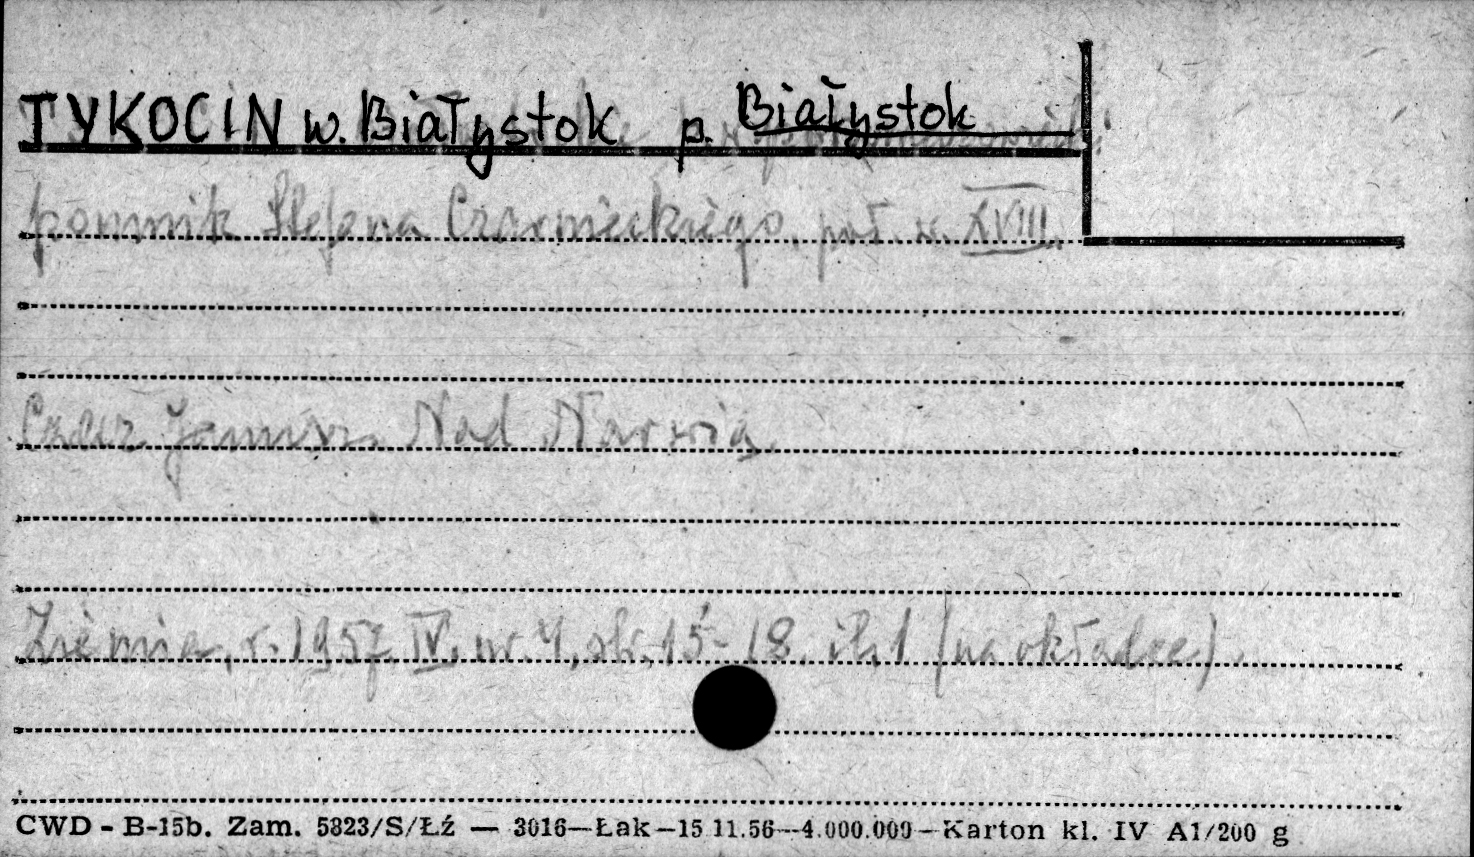 TYKOCIN w. Białystok p. Białystok
pomnik Stefana Czarnieckiego, poł. w. XVIII.
Czar Janusz. Nad Narwią.
Ziemia, r. 1957, IV, nr. 4, str. 15-18. il. 1 (na okładce).
CWD - B-15b. Zam. 5823/S/Łź — 3016—Łak—15.11.56—4.000.000—Karton kl. IV A1/200 g